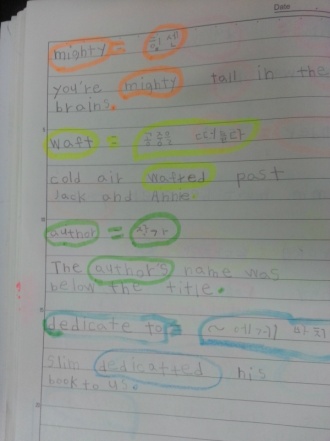 Date
mighty = 힘 센
you're mighty tall in the
brains.
waft = 공중을 떠돌다
cold air wafted past
Jack and Annie.
author = 작가
The author's name was
below the title.
dedicate to = ~에게 바치
Slim dedicatted his
book to us.